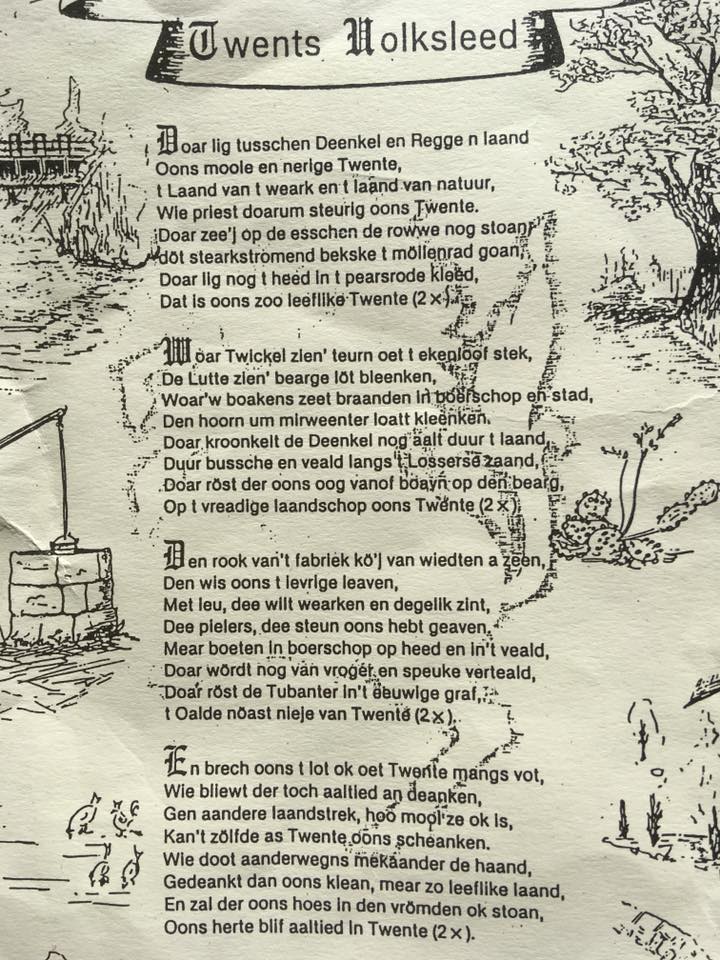 Twents Volksleed
Doar lig tusschen Deenkel en Regge n laand
Oons mooie en nerige Twente,
t Laand van t weark en t laand van natuur,
Wie priest doarum steurig oons Twente.
Doar zee'j op de esschen de rowwe nog stoan,
döt stearkstromend bekske t möllenrad goan,
Doar lig nog t heed in t pearsrode kleed,
Dat is oons zoo leeflike Twente (2x).
Woar Twickel zien' teurn oet t ekenloof stek,
De Lutte zien' bearge löt bleenken,
Woar'w boakens zeet braanden in boerschop en stad,
Den hoorn um mirweenter loatt kleenken.
Doar kroonkelt de Deenkel nog aait duur t laand,
Duur bussche en veald langs 't Losserse zaand,
Doar röst der oons oog vanof boavn op den bearg,
Op t vreadige laandschop oons Twente (2x).
Den rook van't fabriek kö'j van wiedten a zeen,
Den wis oons t ievrige leaven,
Met leu, dee wilt wearken en degelik zint,
Dee pielers, dee steun oons hebt geaven,
Mear boeten in boerschop op heed en in't veald,
Doar wördt nog van vroger en speuke verteald,
Doar röst de Tubanter in't eeuwige graf,
t Oalde nöast nieje van Twente (2x).
En brech oons t lot ok oet Twente mangs vot,
Wie bliewt der toch aaltied an deanken,
Gen aandere laandstrek, hoo mooi'ze ok is,
Kan't zölfde as Twente oons scheanken.
Wie doot aanderwegns mekaander de haand,
Gedeankt dan oons klean, mear zo leeflike laand,
En zal der oons hoes in den vrömden ok stoan,
Oons herte blif aaltied in Twente (2x).